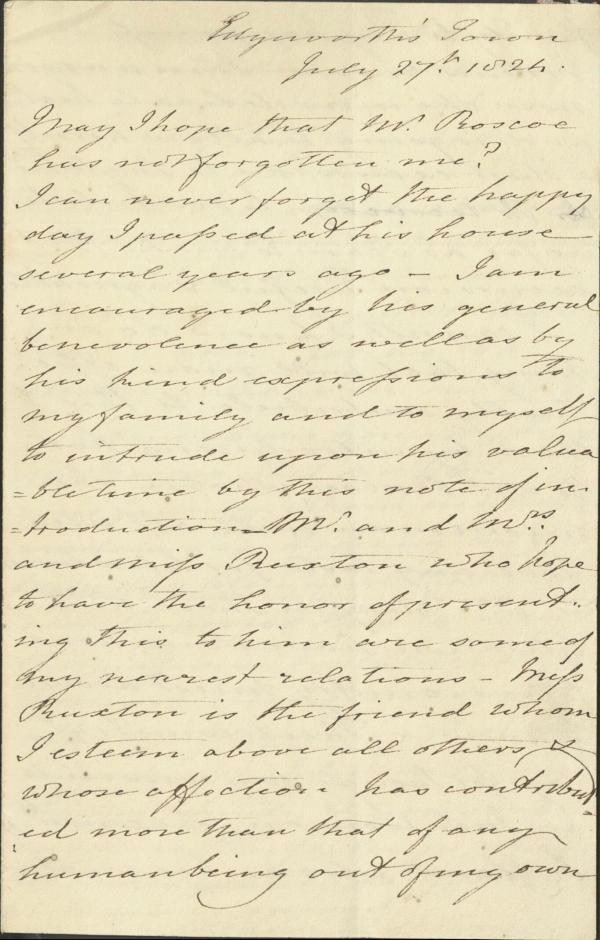 Edgeworth's Town
July 27th. 1824.
May I hope that Mr. Roscoe
has not forgotten me?
I can never forget the happy
day I passed at his house
several years ago - I am
encouraged by his general
benevolence as well as by
his kind expressions to
my family and to myself
to intrude upon his valua
=ble time by this note of in-
=troduction - Mr. and Mrs.
and Miss Ruxton who hope
to have the honor of present-
ing this to him are some of
my nearest relations - Miss
Ruxton is the friend whom
I esteem above all others &
whose affection has contribut=
ed more than that of any
human being out of my own